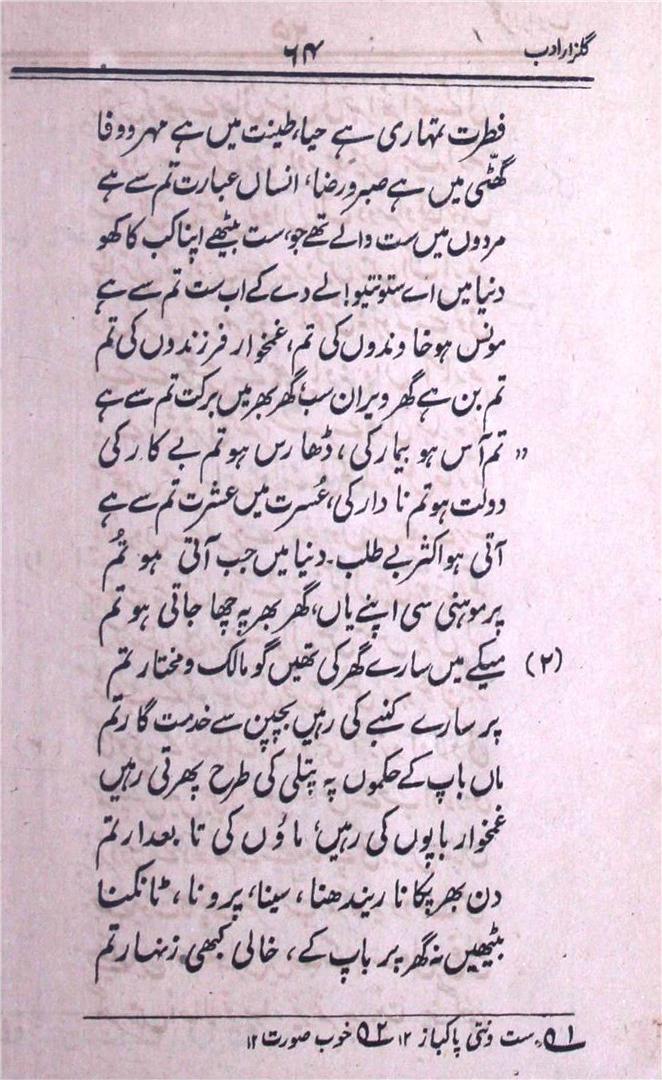 گلزار ادب
۶۴
فطرت تمہاری ہے حیا، طینت میں ہے مہر و وفا
گھٹی میں ہے صبر و رضا، انساں عبارت تم سے ہے
مردوں میں ست والے تھے جو، ست بیٹھے اپنا کب کا کھو
دنیا میں اے ستونتیو! لے دے کے اب ست تم سے ہے
مونس ہو خاوندوں کی تم، غمخوار فرزندوں کی تم
تم بن ہے گھر ویران سب، گھر بھر میں برکت تم سے ہے
" تم آس ہو بیمار کی، ڈھارس ہو تم بے کار کی
دولت ہو تم نادار کی، عُسرت میں عشرت تم سے ہے
آتی ہو اکثر بے طلب۔ دنیا میں جب آتی ہو تُم
پر موہنی سی اپنے یاں، گھر بھر پہ چھا جاتی ہو تم
(۲) میکے میں سارے گھر کی تھیں گو مالک و مختار تم
پر سارے کنبے کی رہیں بچپن سے خدمت گار تم
ماں باپ کے حکموں پہ پتلی کی طرح پھرتی رہیں
غمخوار باپوں کی رہیں، ماؤں کی تابعدار تم
دن بھر پکانا ریندھنا، سینا، پرونا، ٹانکنا
بیٹھیں نہ گھر پر باپ کے، خالی کبھی زنہار تم
۱؎ ست ونتی پاکباز ۱۲ ۲؎ خوب صورت ۱۲